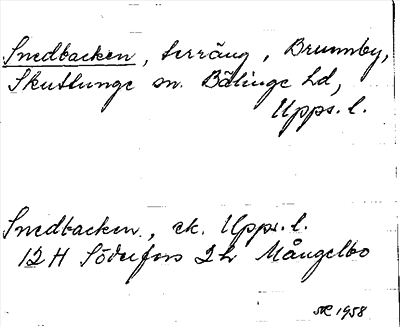 Snedbacken, terräng, Brunnby,
Skuttunge sn. Bälinge hd,
Upps. l.
Snedbacken, ek. Upps. l.
12 H Söderfors 2 h Mångelbo
1958